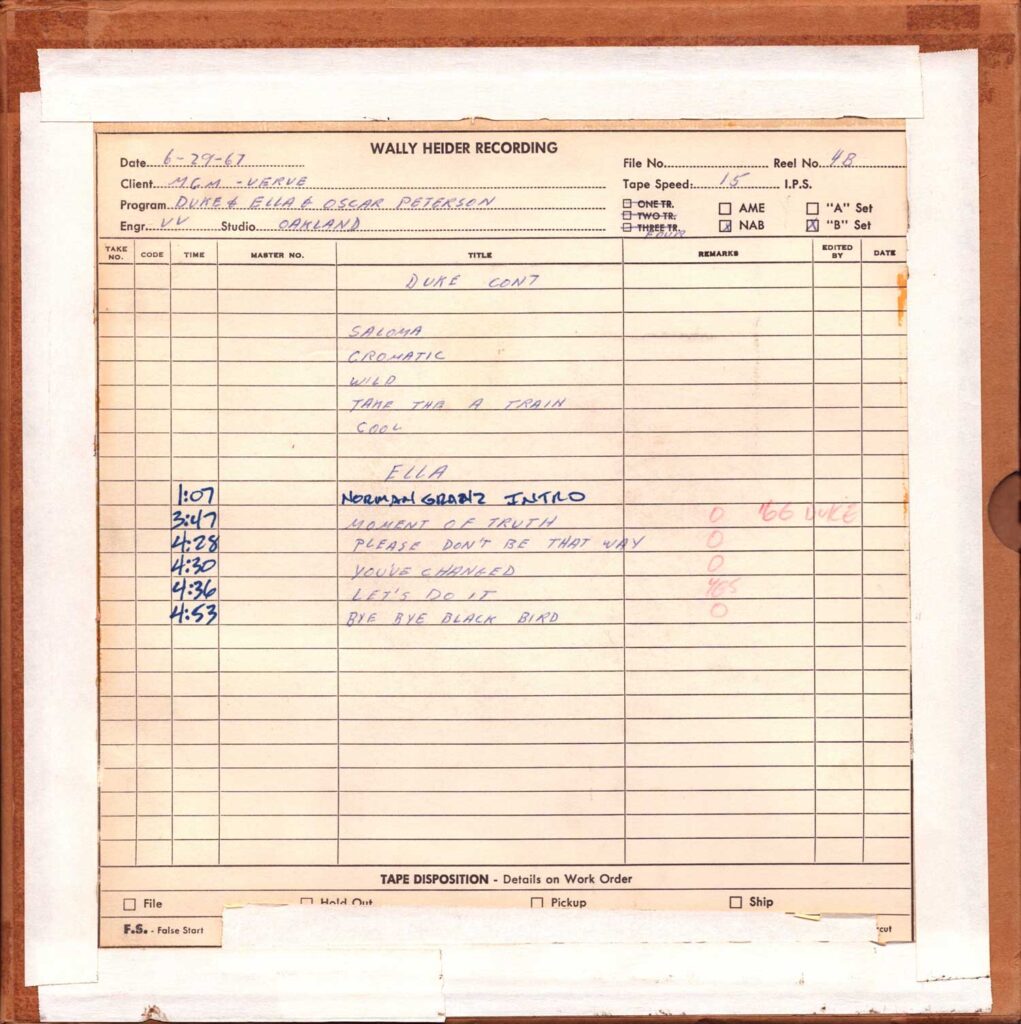 WALLY HEIDER RECORDING
Date 6-29-67 File No. Reel No. 4B
Client MGM-VERVE Tape Speed: 15 I.P.S.
Program DUKE & ELLA & OSCAR PETERSON
ONE TR. AME "A" Set
TWO TR.
Engr. VV Studio OAKLAND THREE TR. NAB "B" Set
FOUR
TAKE NO. CODE TIME MASTER NO. TITLE REMARKS EDITED BY DATE
DUKE CONT
SALOMA
CROMATIC
WILD
TAKE THE A TRAIN
COOL
ELLA
1:07 NORMAN GRANZ INTRO
3:47 MOMENT OF TRUTH O '66 DUKE
4:28 PLEASE DON'T BE THAT WAY O
4:30 YOU'VE CHANGED O
4:36 LET'S DO IT YES
4:53 BYE BYE BLACK BIRD O
TAPE DISPOSITION - Details on Work Order
File Hold Out Pickup Ship
F.S. - False Start cut